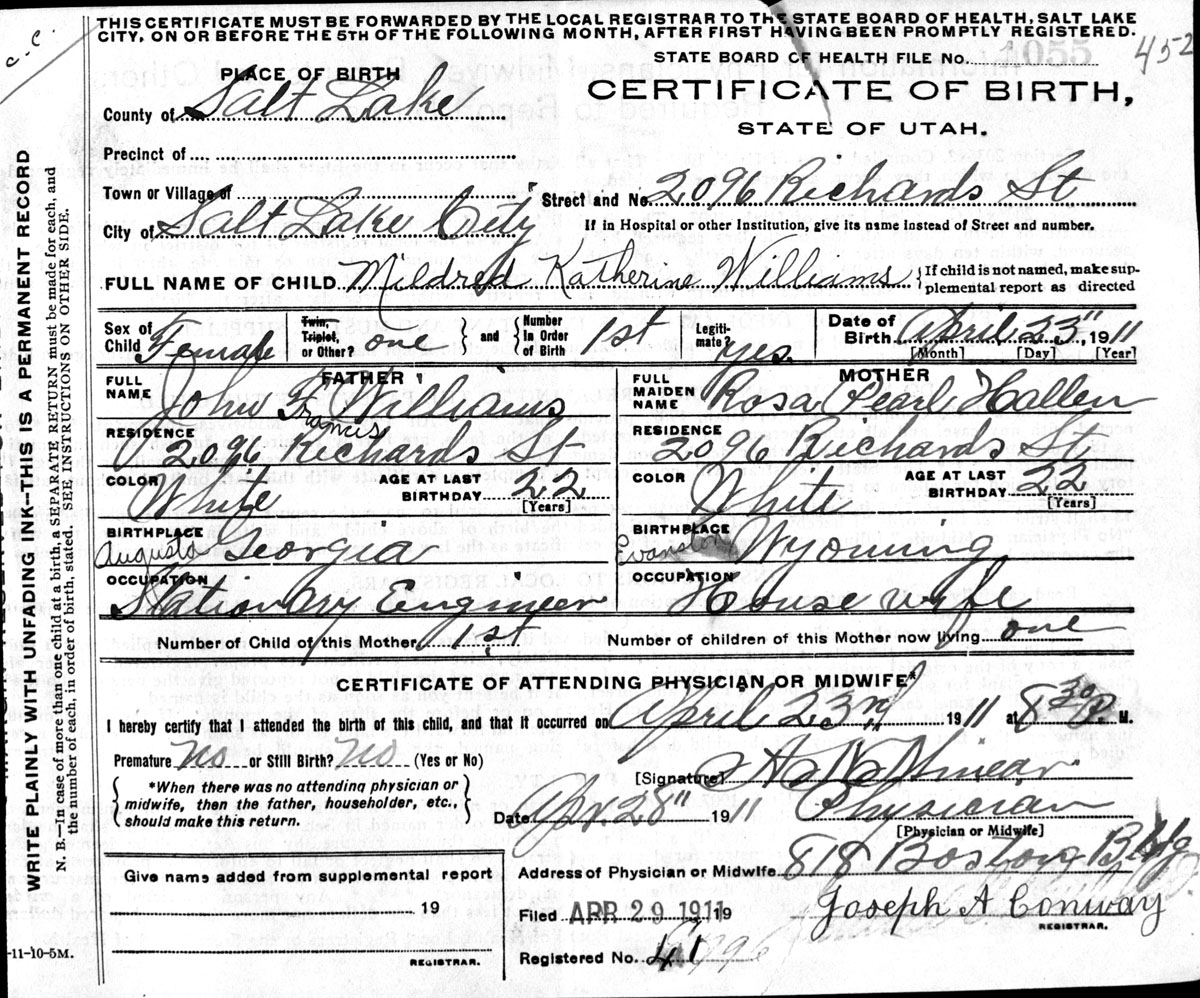 THIS CERTIFICATE MUST BE FORWARDED BY THE LOCAL REGISTRAR TO THE STATE BOARD OF HEALTH, SALT LAKE
CITY, ON OR BEFORE THE 5TH OF THE FOLLOWING MONTH, AFTER FIRST HAVING BEEN PROMPTLY REGISTERED.
c.c.
STATE BOARD OF HEALTH FILE No. 1055
452
PLACE OF BIRTH
CERTIFICATE OF BIRTH,
County of Salt Lake
STATE OF UTAH.
Precinct of
Town or Village of
Street and No. 2096 Richards St
City of Salt Lake City
If in Hospital or other Institution, give its name instead of Street and number.
FULL NAME OF CHILD Mildred Katherine Williams { If child is not named, make sup-
plemental report as directed
Sex of Child Female
Twin, Triplet, or Other? one } and { Number In Order of Birth 1st
Legiti-mate? Yes.
Date of Birth April 23", 1911
[Month] [Day] [Year]
FATHER
FULL NAME John Francis Williams
MOTHER
FULL MAIDEN NAME Rosa Pearl Hallen
RESIDENCE 2096 Richards St
RESIDENCE 2096 Richards St
COLOR White AGE AT LAST BIRTHDAY 22 [Years]
COLOR White AGE AT LAST BIRTHDAY 22 [Years]
BIRTHPLACE Augusta Georgia
BIRTHPLACE Evanston Wyoming
OCCUPATION Stationary Engineer
OCCUPATION House wife
Number of Child of this Mother 1st
Number of children of this Mother now living one
CERTIFICATE OF ATTENDING PHYSICIAN OR MIDWIFE*
I hereby certify that I attended the birth of this child, and that it occurred on April 23rd 1911 at 8 30 P. M.
Premature no or Still Birth? no (Yes or No)
[Signature]
{ *When there was no attending physician or
midwife, then the father, householder, etc.,
should make this return. }
Date Apr. 28" 1911 Physician
[Physician or Midwife]
Address of Physician or Midwife 818 Boston Bldg
Give name added from supplemental report
19
REGISTRAR.
Filed APR 29 1911 19 Joseph A Conway
REGISTRAR.
Registered No.
-11-10-5M.
WRITE PLAINLY WITH UNFADING INK—THIS IS A PERMANENT RECORD
N. B.—In case of more than one child at a birth, a SEPARATE RETURN must be made for each, and
the number of each, in order of birth, stated. SEE INSTRUCTIONS ON OTHER SIDE.